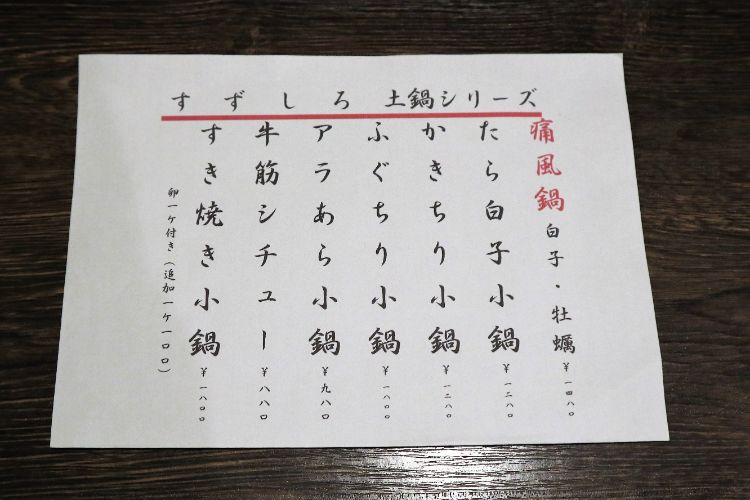 すずしろ 土鍋シリーズ
痛風鍋 白子・牡蠣 ¥一四八〇
たら白子小鍋 ¥一二八〇
かきちり小鍋 ¥一二八〇
ふぐちり小鍋 ¥一八〇〇
アラあら小鍋 ¥九八〇
牛筋シチュー ¥八八〇
すき焼き小鍋 ¥一八〇〇
卵一ケ付き(追加一ケ一〇〇)